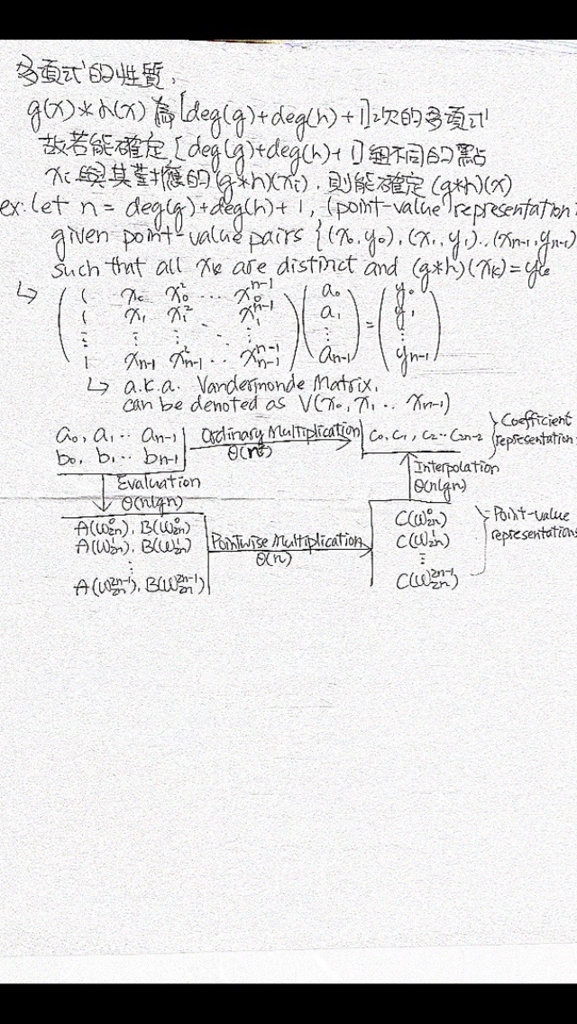 多項式的性質,
g(x)*h(x) 為 [deg(g)+deg(h)+1]次的多項式
故若能確定 [deg(g)+deg(h)+1]組不同的點
xi 與其對應的 (g*h)(xi), 則能確定 (g*h)(x)
ex: let n = deg(g)+deg(h)+1, (point-value representation:
given point-value pairs {(x0,y0),(x1,y1)..(xn-1,yn-1)
such that all xk are distinct and (g*h)(xk)=yk
↳ ( 1 x0 x0^2 ... x0^n-1 ) ( a0 ) = ( y0 )
( 1 x1 x1^2 ... x1^n-1 ) ( a1 ) ( y1 )
( ⋮ ⋮ ⋮ ⋱ ⋮ ) ( ⋮ ) ( ⋮ )
( 1 xn-1 x^2n-1 ... x^n-1n-1 ) ( an-1 ) ( yn-1 )
↳ a.k.a. Vandermonde Matrix,
can be denoted as V(x0,x1...xn-1)
a0, a1... an-1
b0, b1... bn-1
Ordinary Multiplication
Θ(n^2)
c0,c1,c2...c2n-2
Coefficient
representation
Evaluation
Θ(nlgn)
Interpolation
Θ(nlgn)
A(ω^0 2n), B(ω^0 2n)
A(ω^1 2n), B(ω^1 2n)
⋮
A(ω^2n-1 2n), B(ω^2n-1 2n)
Pointwise Multiplication
Θ(n)
C(ω^0 2n)
C(ω^1 2n)
⋮
C(ω^2n-1 2n)
Point-value
representations